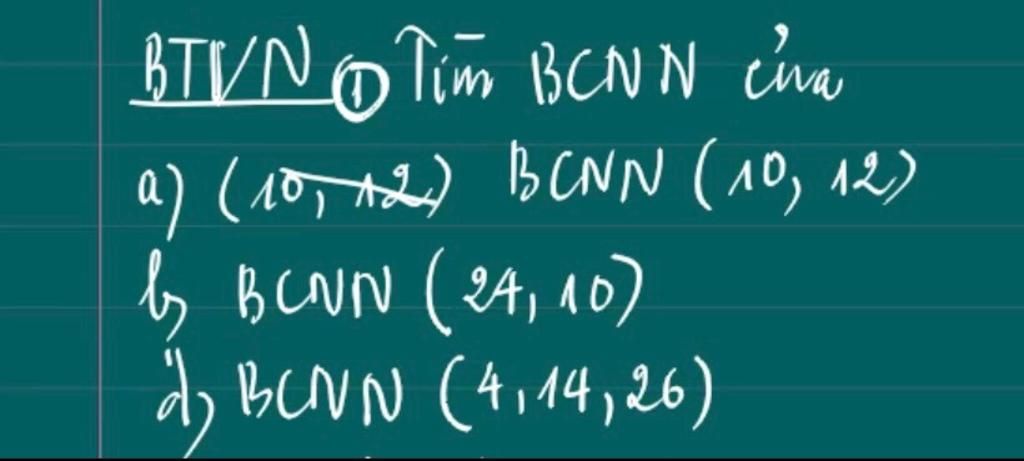 BTVN ① Tìm BCNN của
a) (10, 12) BCNN (10, 12)
b) BCNN (24, 10)
d) BCNN (4, 14, 26)